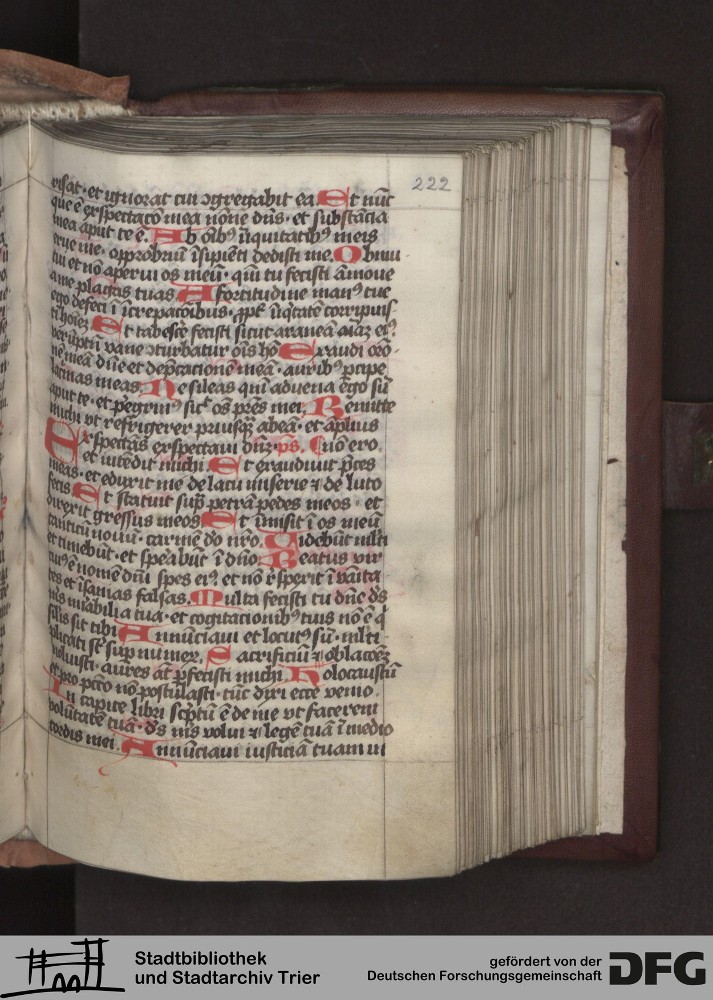 222
risat · et ignorat cui ɔgregabit ea. Et nūc
que ē exspectacō mea nōne dn̄s · et substācia
mea aput te ē. Ab oīb9 iīquitatib9 meis
erue me · opprobriū īsipiēti dedisti me. Obmu
tui et nō aperui os meū · qm̄ tu fecisti āmoue
a me plagas tuas A fortitudine man9 tue
ego defeci ī īcrepacōibus · ꝓpt̄ īīqtatē corripuis
ti hoīeʒ Et tabescē fecisti sicut araneā aīaʒ ei9
verūptn̄ vane ɔturbatur oīs hō Exaudi orō
nē meā dn̄e et dep̄cacionē meā · aurib9 ꝑcipe
lacrimas meas. Ne sileas qm̄ aduena ego sū
aput te · et ꝑegrin9 sic̄ oēs pr̄es mei. Remitte
michi vt refrigerer priusqꝫ abeā · et āplius
Exspectās exspectaui dn̄ʒ · ps. nō ero.
et intēdit michi. Et exaudiuit p̄ces
meas · et eduxit me de lacu miserie ⁊ de luto
fecis Et statuit sup̄ petrā pedes meos · et
direxit gressus meos Et īmisit ī os meū
canticū nouū · carmē dō nr̄o. Uidebūt mlti
et timebūt · et speabūt ī dn̄o Beatus vir
cui9 ē nomē dn̄i spes ei9 · et nō r̄spexit ī vāita
tes et īsanias falsas. Multa fecisti tu dn̄e ds̄
ms̄ mirabilia tua · et cogitacionib9 tuis nō ē q̄
silis sit tibi Annūciaui et locut9 sū · mlti
plicati st̄ sup numeꝝ. Sacrificiū ⁊ oblacōeʒ
noluisti · aures āt ꝑfecisti michi. Holocaustū
et pro pctō nō postulasti · tūc dixi ecce venio.
In capite libri sc̄ptū ē de me vt facerem
volūtatē tuā · ds̄ ms̄ volui ⁊ legē tuā ī medio
cordis mei. Annūciaui iusticiā tuam in
Stadtbibliothek
und Stadtarchiv Trier
gefördert von der
Deutschen Forschungsgemeinschaft
DFG